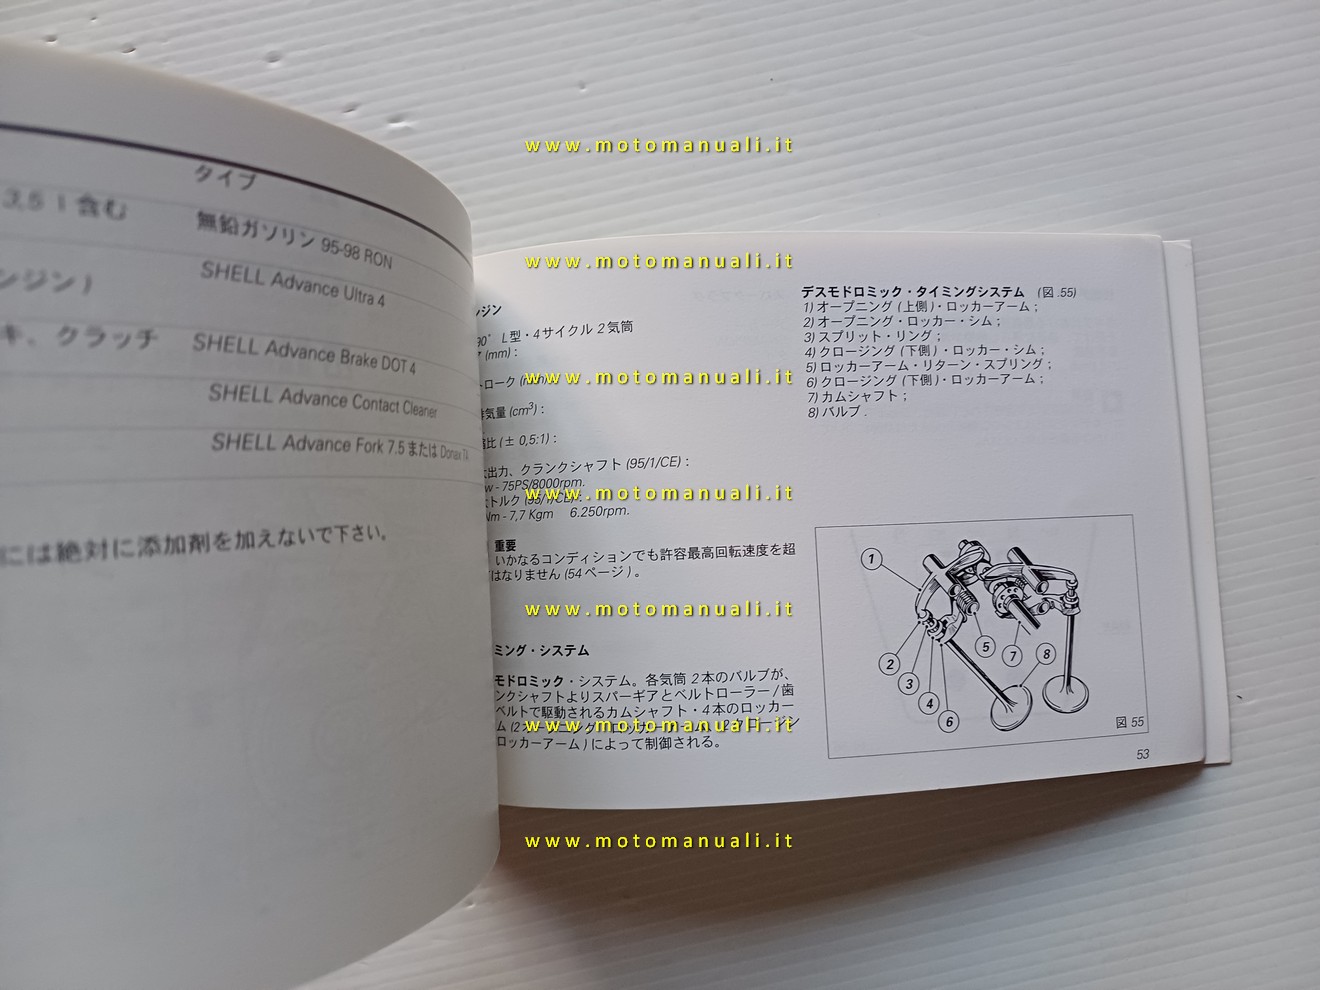 タイプ
3,5 l 含む
無鉛ガソリン 95-98 RON
ンジン )
SHELL Advance Ultra 4
キ、クラッチ
SHELL Advance Brake DOT 4
SHELL Advance Contact Cleaner
SHELL Advance Fork 7.5 または Donax
には絶対に添加剤を加えないで下さい。
ンジン
90° L型・4サイクル 2気筒
(mm) :
トローク (mm) :
気量 (cm³) :
比 (± 0,5:1) :
出力、クランクシャフト (95/1/CE) :
w - 75PS/8000rpm.
トルク (95/1/CE) :
Nm - 7,7 Kgm 6.250rpm.
重要
いかなるコンディションでも許容最高回転速度を超
はなりません (54ページ) 。
ミング・システム
モドロミック・システム。各気筒 2本のバルブが、
ンクシャフトよりスパーギアとベルトローラー / 歯
ベルトで駆動されるカムシャフト・4本のロッカー
ロッカーアーム ) によって制御される。
デスモドロミック・タイミングシステム (図 .55)
1) オープニング (上側 )・ロッカーアーム ;
2) オープニング・ロッカー・シム ;
3) スプリット・リング ;
4) クロージング (下側 )・ロッカー・シム ;
5) ロッカーアーム・リターン・スプリング ;
6) クロージング (下側 )・ロッカーアーム ;
7) カムシャフト ;
8) バルブ .
1
2
3
4
6
5
7
8
図 55
53
www.motomanuali.it
www.motomanuali.it
www.motomanuali.it
www.motomanuali.it
www.motomanuali.it
www.motomanuali.it
www.motomanuali.it